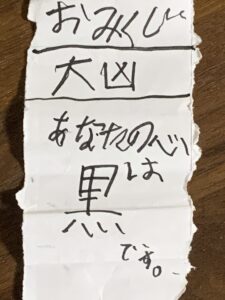 おみくじ
大凶
あなたの心は
黒
です。